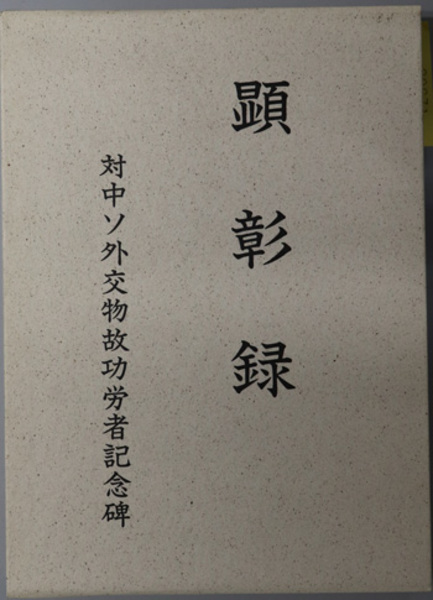 顕彰録
対中ソ外交物故功労者記念碑